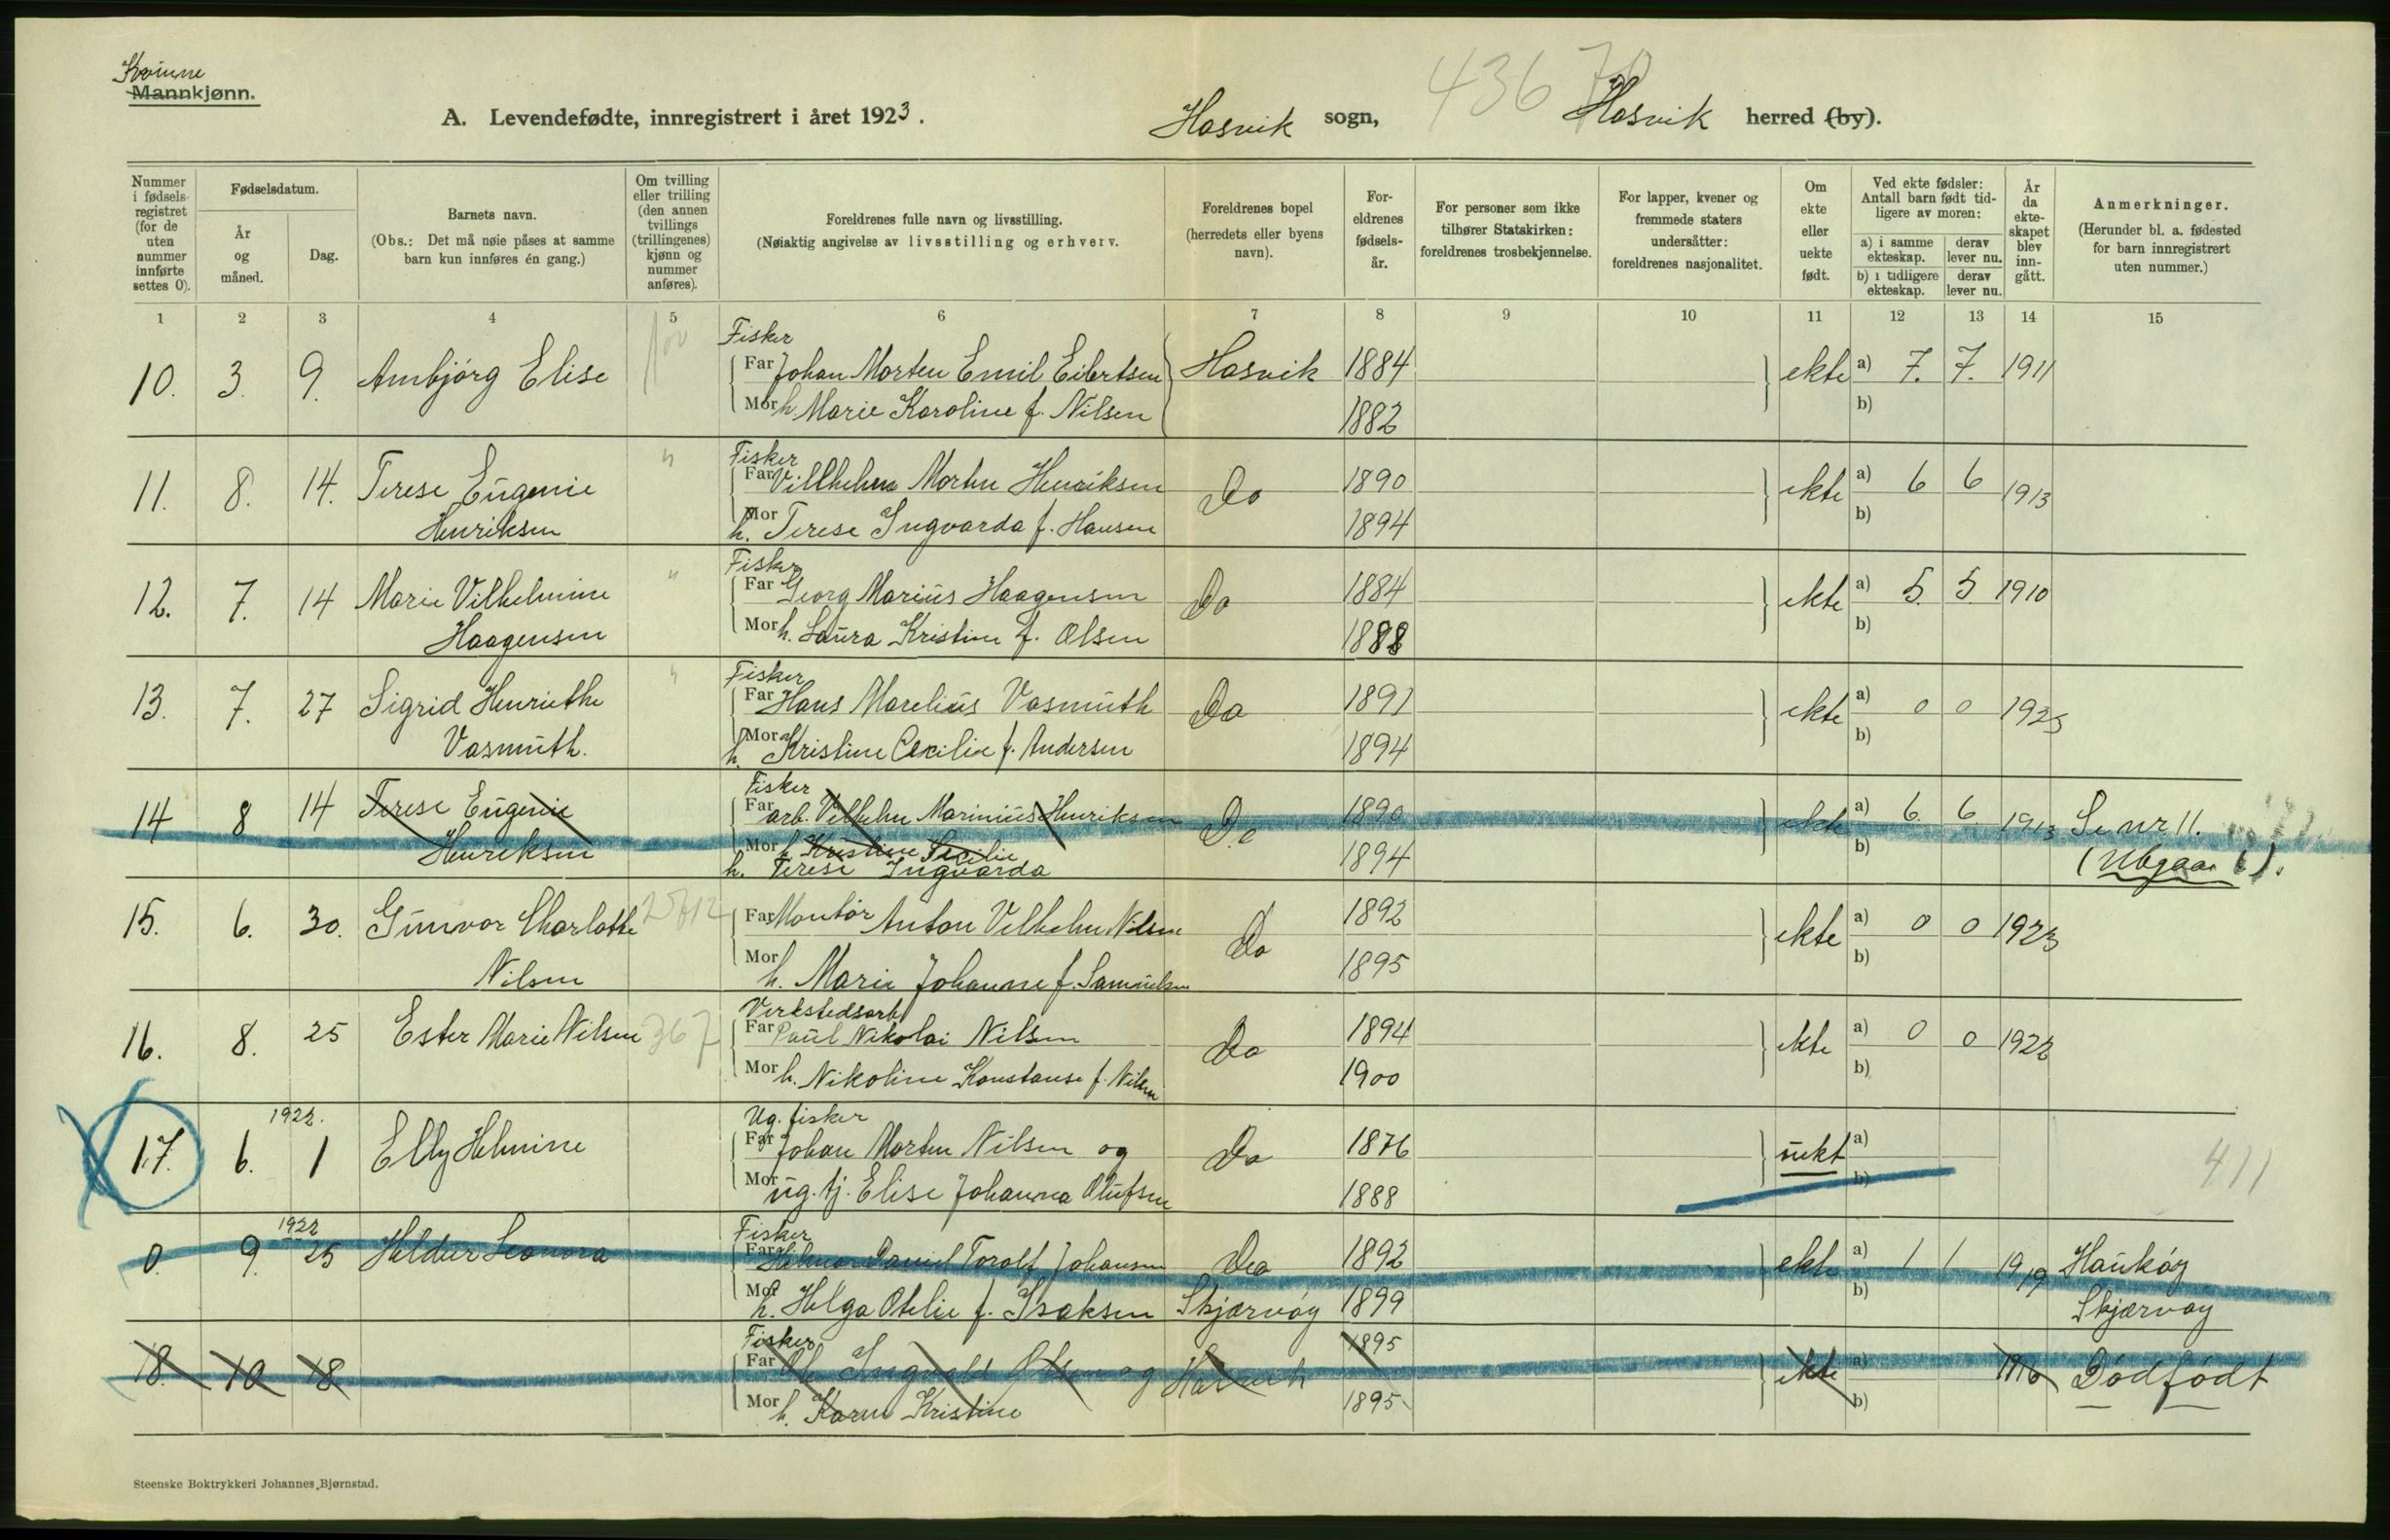 Kvinne
Mannkjønn.
A. Levendefødte, innregistrert i året 1923.
Hasvik sogn,
436
Hasvik herred (by).
Nummer i fødselsregistret (for de uten nummer innførte settes 0).
Fødselsdatum.
År og måned.
Dag.
Barnets navn.
(Obs.: Det må nøie påses at samme barn kun innføres én gang.)
Om tvilling eller trilling (den annen tvillings (trillingenes) kjønn og nummer anføres).
Foreldrenes fulle navn og livsstilling.
(Nøiaktig angivelse av livsstilling og erhverv.
Foreldrenes bopel (herredets eller byens navn).
Foreldrenes fødselsår.
For personer som ikke tilhører Statskirken: foreldrenes trosbekjennelse.
For lapper, kvener og fremmede staters undersåtter: foreldrenes nasjonalitet.
Om ekte eller uekte født.
Ved ekte fødsler: Antall barn født tidligere av moren:
a) i samme ekteskap.
derav lever nu.
b) i tidligere ekteskap.
derav lever nu.
År da ekteskapet blev inngått.
Anmerkninger.
(Herunder bl. a. fødested for barn innregistrert uten nummer.)
1 2 3 4 5 6 7 8 9 10 11 12 13 14 15
Fisker
10. 3. 9. Annbjörg Elise Far Johan Morten Emil Eilertsen Hasvik 1884 ekte a) 7. 7. 1911
Mor h. Marie Karoline f. Nilsen 1882 b)
Fisker
11. 8. 14. Terese Eugenie Far Villhelm Morten Henriksen Do 1890 ekte a) 6 6 1913
Henriksen Mor h. Terese Ingvarda f. Hansen 1894 b)
Fisker
12. 7. 14 Marie Vilhelmine Far Georg Marius Haagensen Do 1884 ekte a) 5. 5. 1910
Haagensen Mor h. Laura Kristine f. Olsen 1888 b)
Fisker
13. 7. 27 Sigrid Henriethe Far Hans Marelius Vasmuth Do 1891 ekte a) 0 0 1923
Vasmuth. Mor h. Kristine Cecilie f. Andersen 1894 b)
Fisker
14 8 14 Terese Eugenie Far arb. Vilhelm Marinius Henriksen Do 1890 ekte a) 6. 6. 1913 Se nr 11.
Henriksen Mor h. Kristine Secilie 1894 b) (Utgaar!).
h. Terese Ingvarda
15. 6. 30. Gunvor Charlotte Far Montör Anton Vilhelm Nilsen Do 1892 ekte a) 0 0 1923
Nilsen Mor h. Marie Johanne f. Samuelsen 1895 b)
Verkstedsarb
16. 8. 25 Ester Marie Nilsen 367 Far Paul Nikolai Nilsen Do 1894 ekte a) 0 0 1922
Mor h. Nikoline Konstanse f. Nilsen 1900 b)
1922. Ug. fisker
17. 6. 1 Elly Helmine Far Johan Morten Nilsen og Do 1876 uekt a)
Mor ug. tj. Elise Johanna Olufsen 1888 b) 411
1922 Fisker
0. 9. 25 Hildur Leonora Far Hilmar Daniel Torolf Johansen 1892 ekte a) 1 1 1919 Hauköy
Mor h. Helga Otelie f. Isaksen Skjærvöy 1899 b) Skjærvöy
Fisker 1895
18. 10 18 Far Ole Ingvald Olsen og Hasvik ekte a) 1916 Dödfödt
Mor h. Karen Kristine 1895 b)
Steenske Boktrykkeri Johannes Bjørnstad.